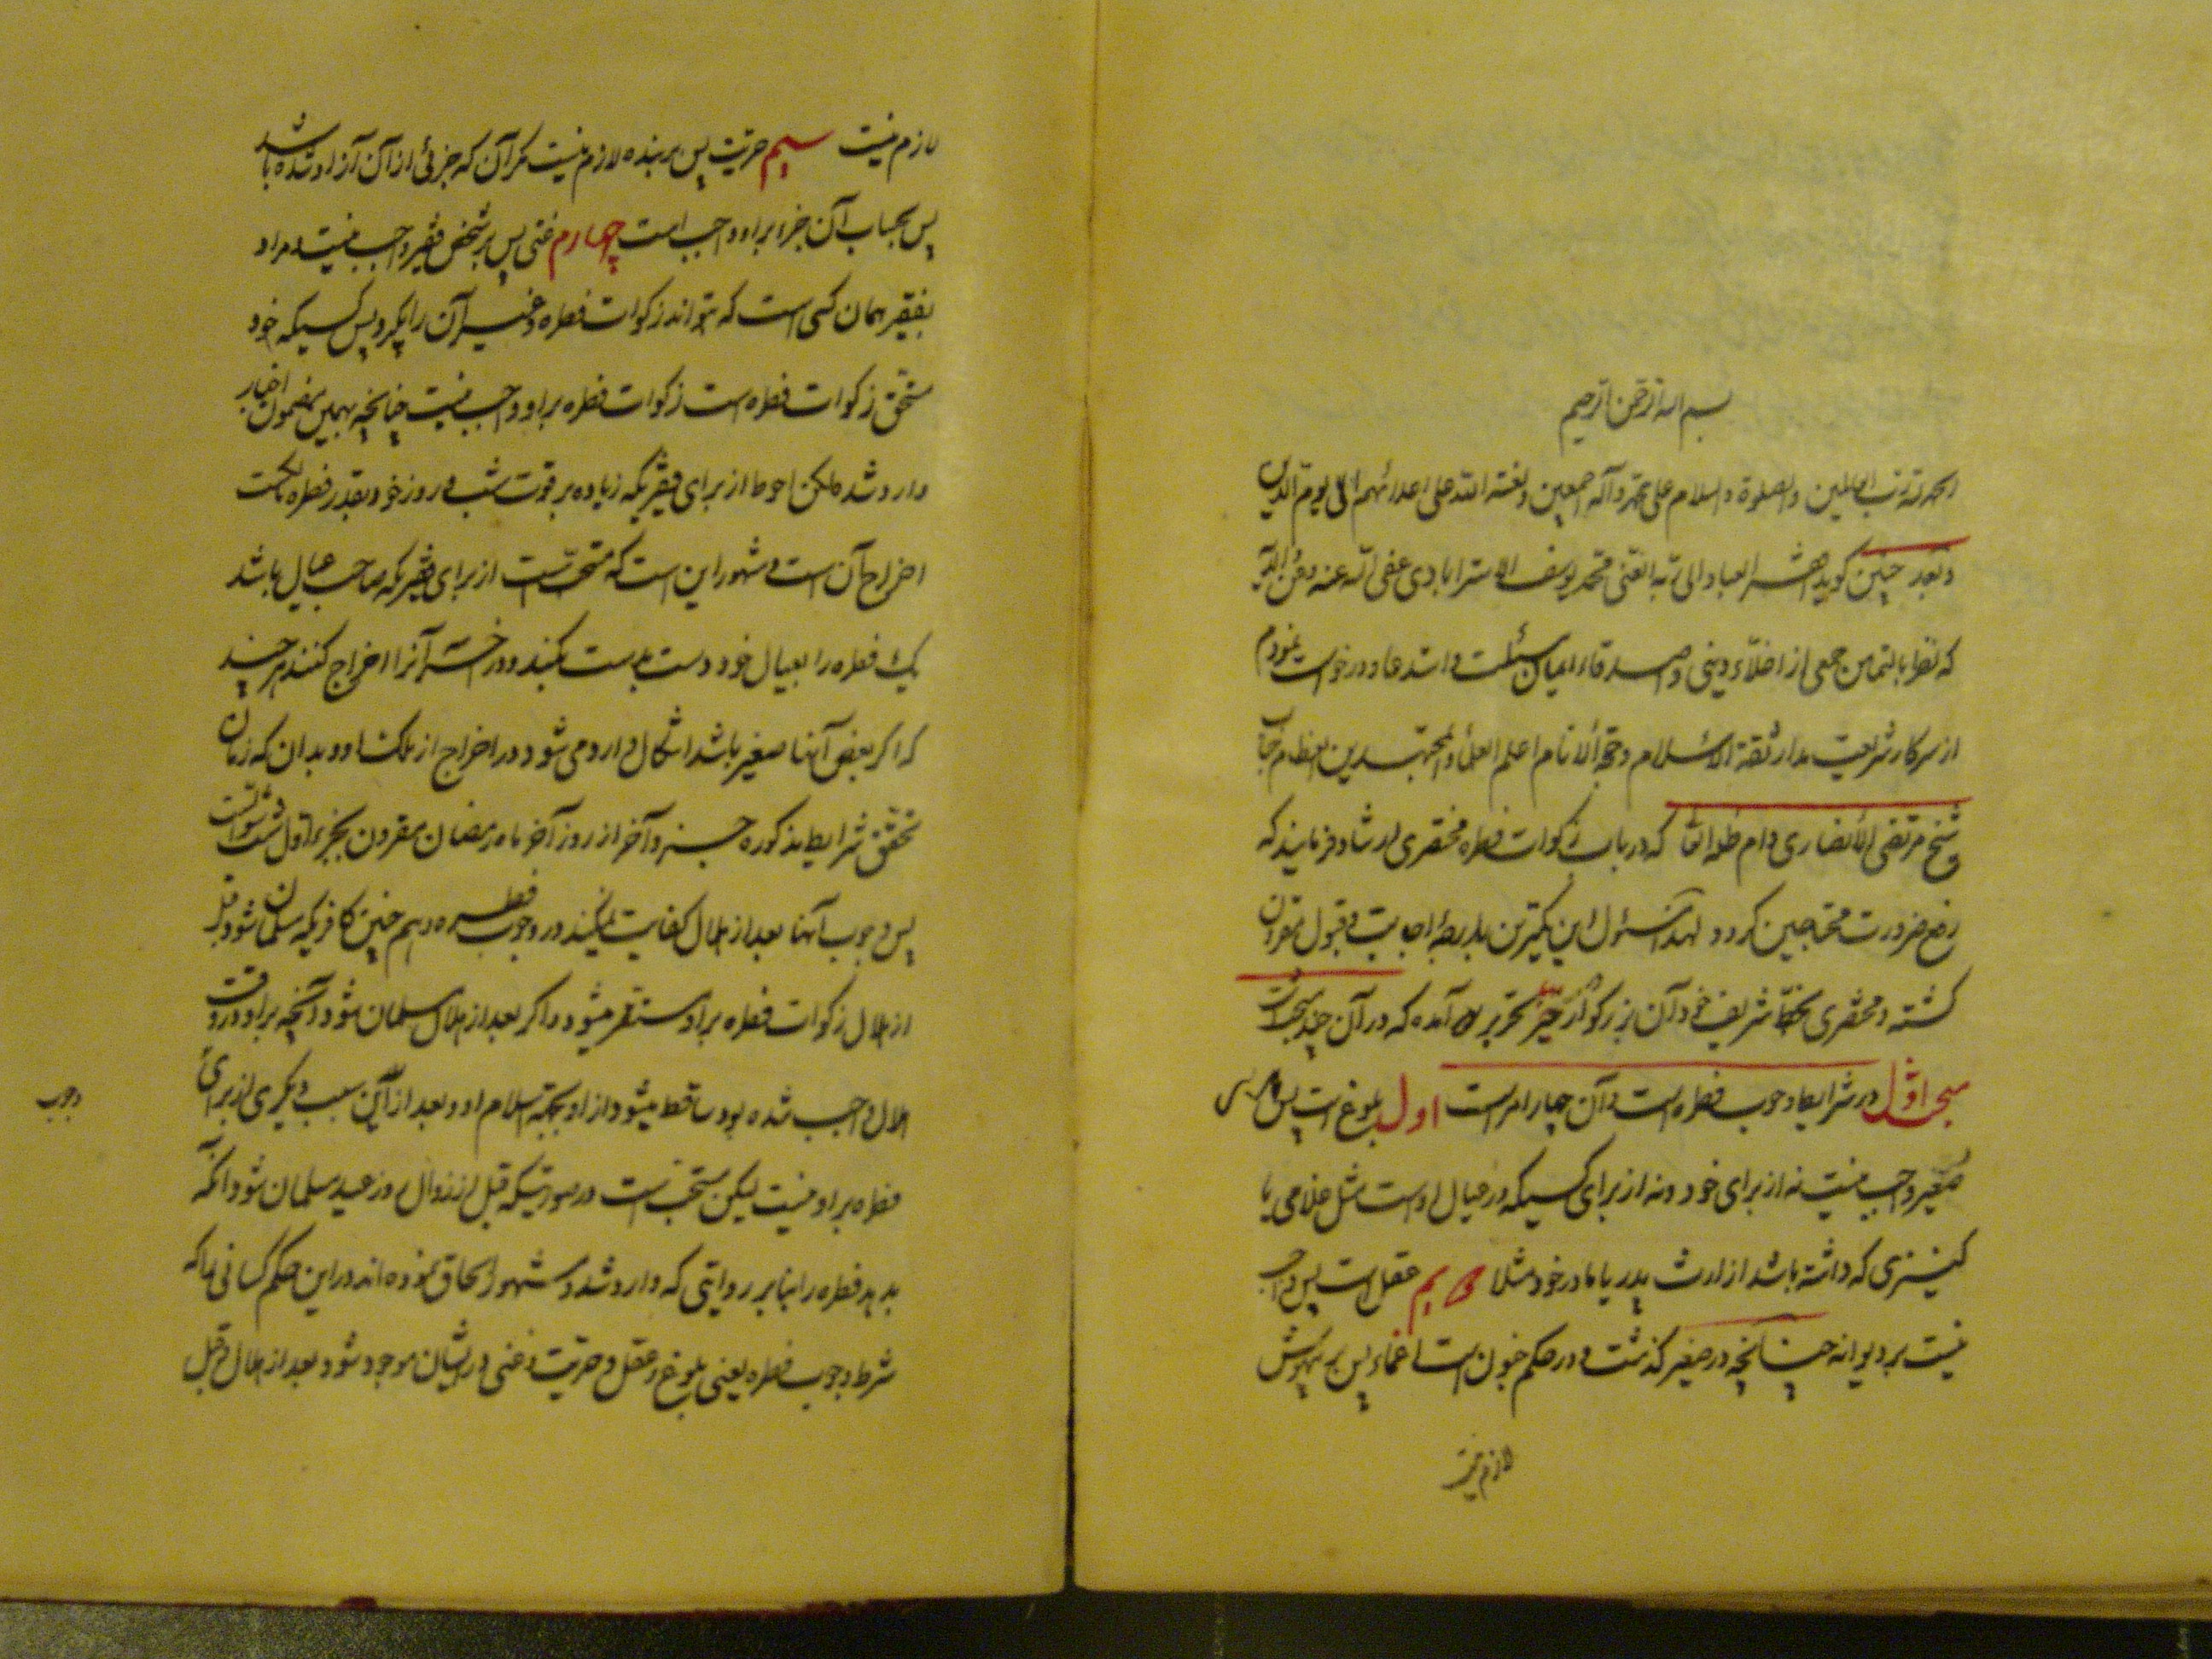 بسم الله الرحمن الرحیم
الحمد لله رب العالمین والصلوة والسلام علی محمد وآله اجمعین ولعنة الله علی اعدائهم الی یوم الدین
وبعد چنین گوید احقر العباد الی ربه الغنی محمد یوسف الاسترابادی عفی الله عنه وعن والدیه
که نظر بالتماس جمعی از اخلاء دینی و اصدقاء ایمانی مسئلت و استدعا و درخواست نمودم
از سرکار شریعتمدار ثقة الاسلام و حجة الانام اعلم العلماء و المجتهدین العظام جناب
شیخ مرتضی الأنصاری دام ظله العالی که در باب زکوات فطره مختصری ارشاد فرمایند که
رفع ضرورت محتاجین کردد لهذا مسئول این کمترین بدرجهٔ اجابت و قبول مقرون
کشته و مختصری بخط شریف خود آن بزرکوار بحیز تحریر در آمده که در آن چند مبحث است
مبحث اول در شرایط وجوب فطره است و آن چهار امر است اول بلوغ است پس بر
صغیر واجب نیست نه از برای خود و نه از برای کسیکه در عیال اوست مثل غلامی یا
کنیزی که داشته باشد از ارث پدر یا مادر خود مثلا دویم عقل است پس واجب
نیست بر دیوانه چنانچه در صغیر کذشت و در حکم جنون است اغماء پس بر بیهوش
لازم نیست
لازم نیست سیم حریت پس بر بنده لازم نیست مکر آن که جزئی از آن آزاد شده باشد
پس بحساب آن جزء بر او واجب است چهارم غنی پس بر شخص فقیر واجب نیست و مراد
بفقیر همان کسی است که بتواند زکوات فطره و غیر آن را بکیرد پس کسیکه خود
مستحق زکوات فطره است زکوات فطره بر او واجب نیست چنانچه بهمین مضمون اخبار
وارد شده لکن احوط از برای فقیریکه زیاده بر قوت شب و روز خود بقدر فطره مالکست
اخراج آن است و مشهور این است که مستحب است از برای فقیریکه صاحب عیال باشد
یک فطره را بعیال خود دست بدست بکند و در آخر آنرا اخراج کنند هر چند
که اکر بعض آنها صغیر باشد اشکال وارد می شود در اخراج از ملک او و بدان که زمان
تحقق شرایط مذکوره جزو آخر از روز آخر ماه رمضان مقرون بجزء اول شب شوالست
پس وجوب آنها بعد از هلال کفایت نمیکند در وجوب فطره و هم چنین کافریکه مسلمان شود قبل
از هلال زکوات فطره بر او مستقر میشود و اکر بعد از هلال مسلمان شود آنچه بر او در وقت
هلال واجب شده بود ساقط میشود از او بجهة اسلام او و بعد از این سبب دیکری از برای
وجوب
فطره بر او نیست لیکن مستحب است در صورتیکه قبل از زوال روز عید مسلمان شود آنکه
بدهد فطره را بنابر روایتی که وارد شده و مشهور الحاق نموده اند در این حکم کسانی را که
شرط وجوب فطره یعنی بلوغ و عقل و حریت و غنی در ایشان موجود شود بعد از هلال و قبل